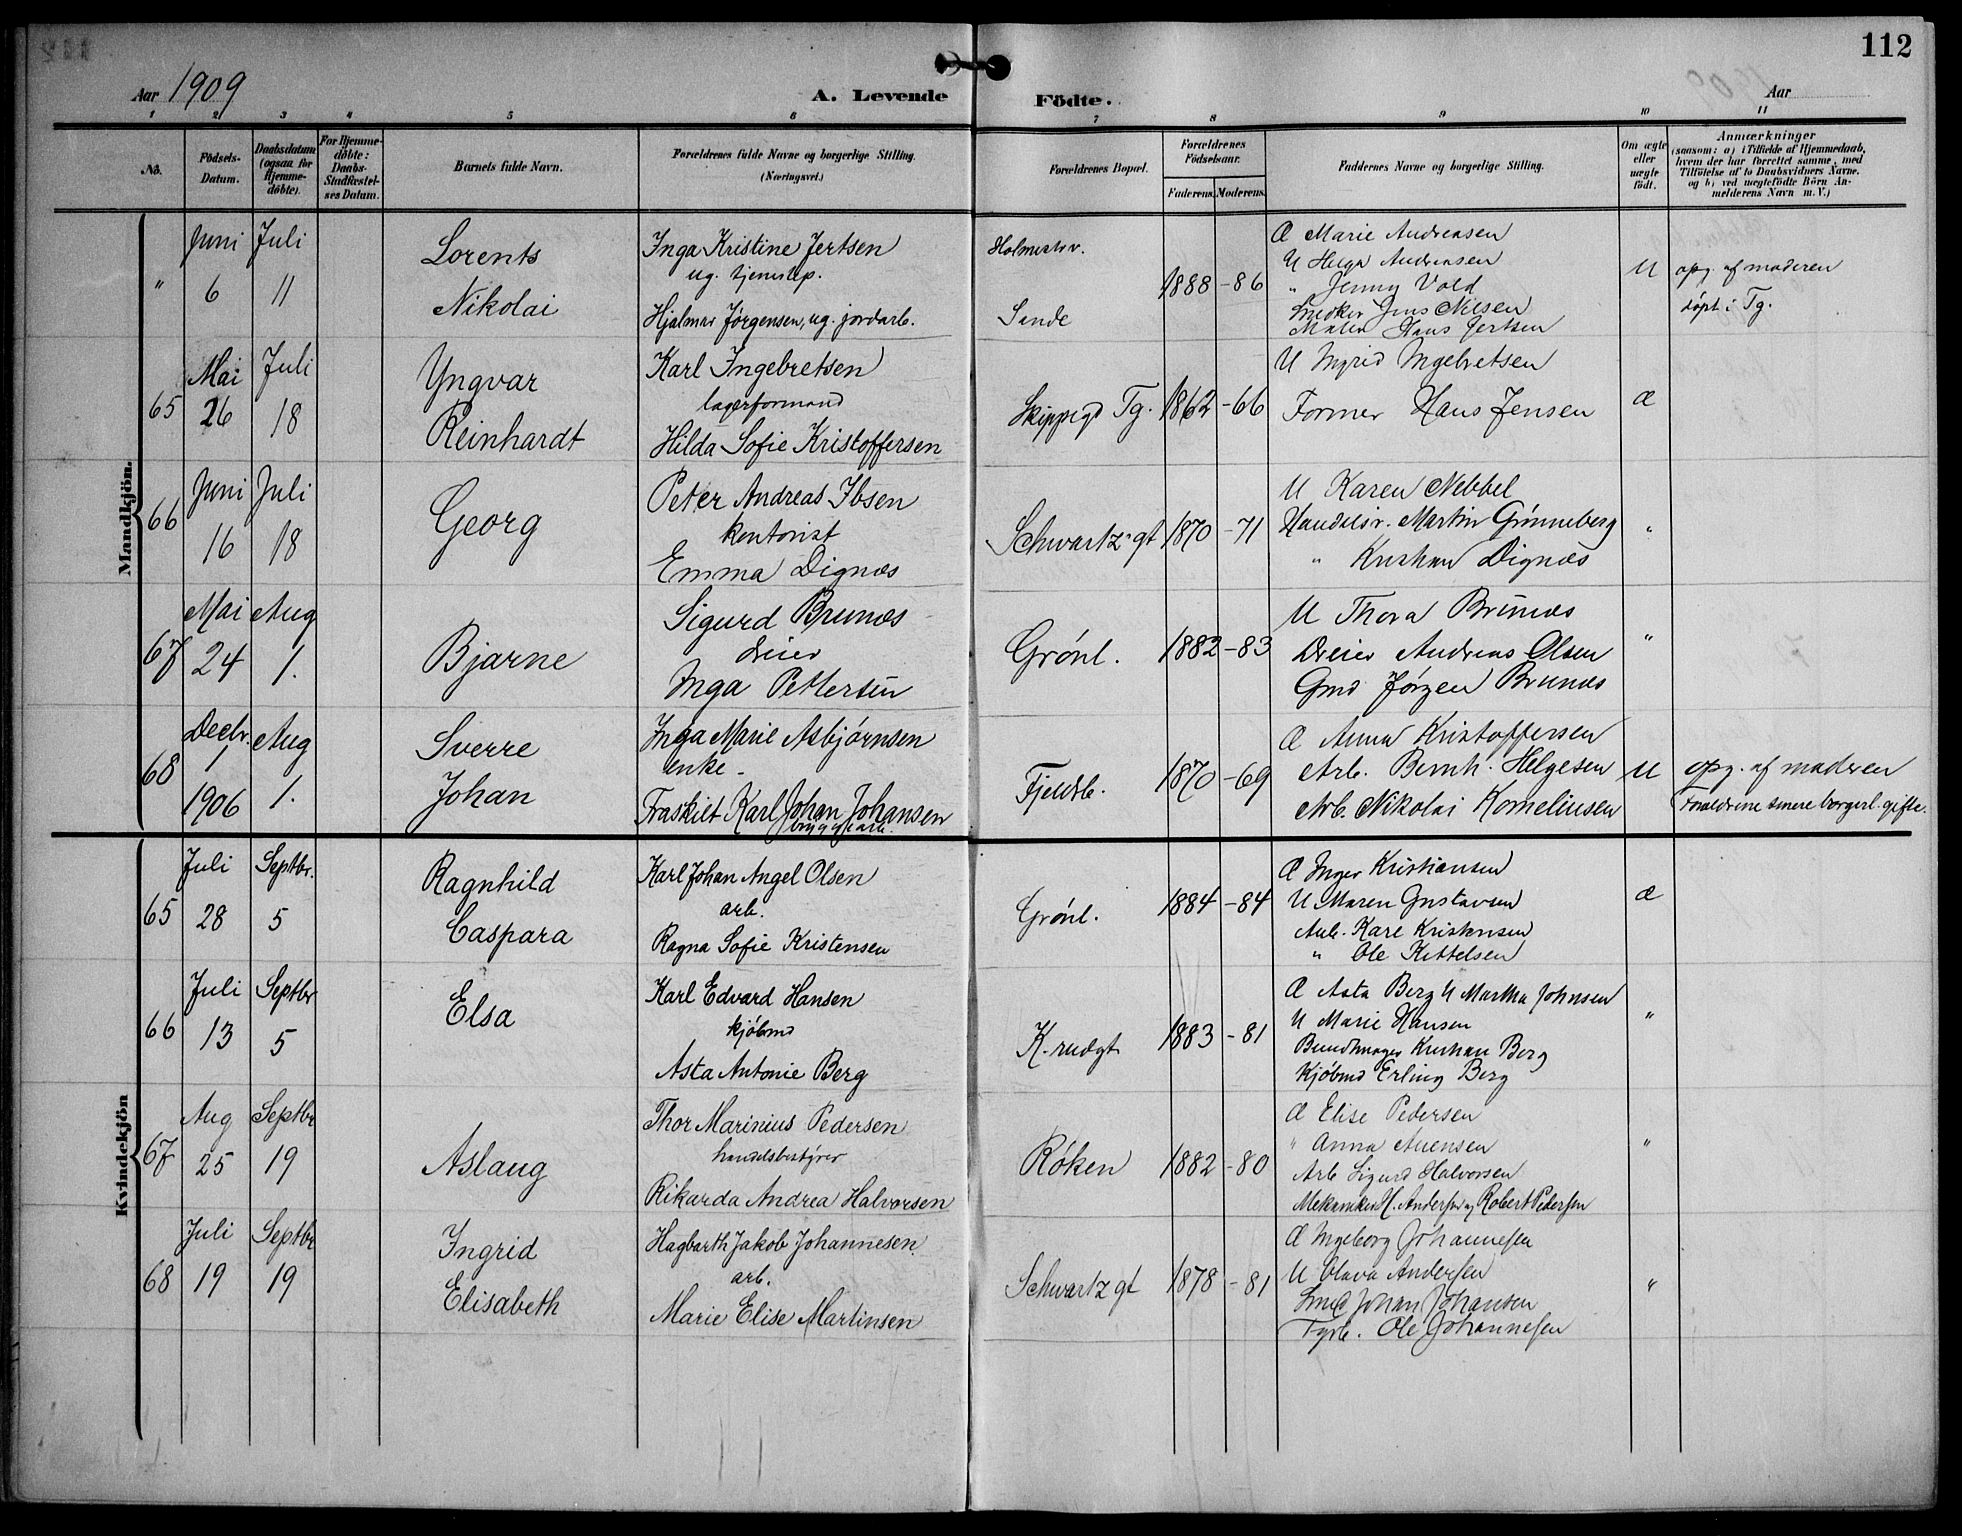 112
Aar 1909
A. Levende Födte.
Aar
1 2 3 4 5 6 7 8 9 10 11
No.
Födsels-Datum.
Daabsdatum (ogsaa for Hjemme-döbte).
For Hjemme-döbte: Daabs-Stadfæstel-ses Datum.
Barnets fulde Navn.
Forældrenes fulde Navne og borgerlige Stilling. (Næringsvei.)
Forældrenes Bopæl.
Forældrenes Födselsaar.
Faderens. Moderens.
Faddernes Navne og borgerlige Stilling.
Om ægte eller uægte födt.
Anmærkninger
(saasom: a) i Tilfælde af Hjemmedaab,
hvem der har forrettet samme, med
Tilföielse af to Daabsvidners Navne.
og b) ved uægtefödte Börn An-
melderens Navn m. V.)
Mandkjön.
" Juni 6 Juli 11
Lorents
Nikolai
Inga Kristine Jertsen
ug. tjenestep.
Hjalmar Jørgensen, ug. jordarb.
Holmestr.
Sande
1888 - 86
Æ Marie Andreasen
U Helga Andreasen
" Jenny Vold
Snedker Jens Nilsen
Maler Hans Jertsen
U
opg. af moderen
døpt i Tg.
65 Mai 26 Juli 18
Yngvar
Reinhardt
Karl Ingebretsen
lagerformand
Hilda Sofie Kristoffersen
Skippergd Tg.
1862 - 66
U Ingrid Ingebretsen
Former Hans Jensen
Æ
66 Juni 16 Juli 18
Georg
Peter Andreas Ibsen
kontorist
Emma Dignæs
Schwartz gt
1870 - 71
U Karen Nebbel
Handelsr. Martin Grønneberg
" Kristian Dignæs
"
67 Mai 24 Aug 1.
Bjarne
Sigurd Brunæs
dreier
Inga Pettersen
Grønl.
1882 - 83
U Thora Brunæs
Dreier Andreas Olsen
Gmd Jørgen Brunæs
"
68 Decbr. 1 1906 Aug 1.
Sverre
Johan
Inga Marie Asbjørnsen
enke -
Fraskilt Karl Johan Johansen
bryggearb.
Fjeldb.
1870 - 69
Æ Anna Kristoffersen
Arb. Bernh. Helgesen
Arb. Nikolai Korneliusen
U
opg. af moderen
Forældrene senere borgerl. gifte.
Kvindekjön
65 Juli 28 Septbr. 5
Ragnhild
Caspara
Karl Johan Angel Olsen
arb.
Ragna Sofie Kristensen
Grønl.
1884 - 84
Æ Inger Kristiansen
U Maren Gustavsen
Arb. Karl Kristensen
" Ole Kittelsen
Æ
66 Juli 13 Septbr 5
Elsa
Karl Edvard Hansen
kjøbmd
Asta Antonie Berg
K. rudgt
1883 - 81
Æ Asta Berg U Martha Johnsen
U Marie Hansen
Bundtmager Kristian Berg
Kjøbmd Erling Berg
"
67 Aug 25 Septbr 19
Aslaug
Thor Marinius Pedersen
handelsbestyrer
Rikarda Andrea Halvorsen
Røken
1882 - 80
Æ Elise Pedersen
" Anna Auensen
Arb Sigurd Halvorsen
Mekaniker H. Andersen og Robert Pedersen
"
68 Juli 19 Septbr 19
Ingrid
Elisabeth
Hagbarth Jakob Johannesen
arb.
Marie Elise Martinsen
Schwartz gt
1878 - 81
Æ Ingeborg Johannesen
U Olava Andersen
Smed Johan Johansen
Fyrb. Ole Johannesen
"